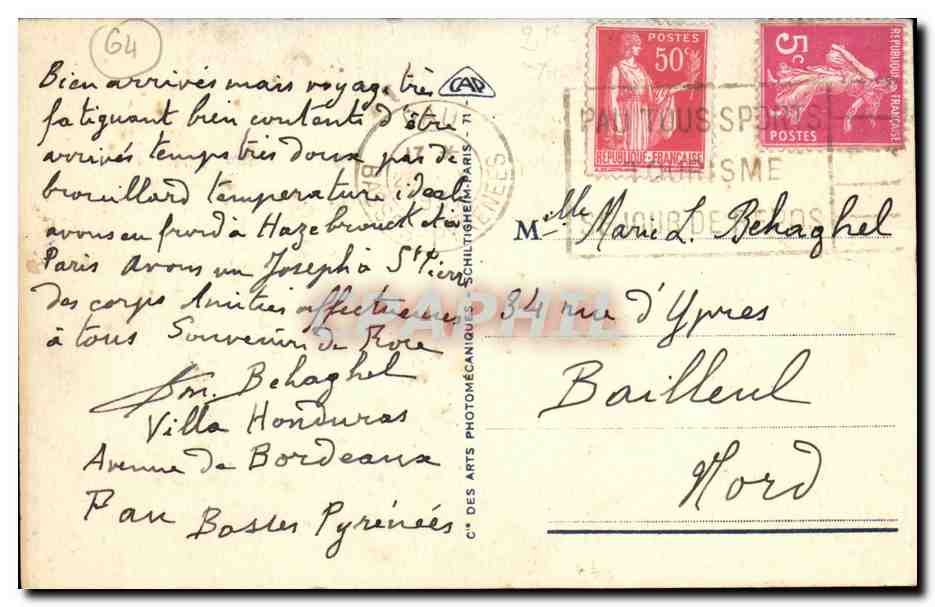 64
Bien arrivés mais voyage très
fatiguant bien contents d'être
arrivés, temps très doux pas de
brouillard température idéale
avons eu froid à Hazebrouck et à
Paris avons vu Joseph à St Pierre
des corps Amitiés affectueuses
à tous Souvenirs de Rose
Em. Behaghel
Villa Honduras
Avenue de Bordeaux
Pau Basses Pyrénées
CAP
Cie DES ARTS PHOTOMÉCANIQUES SCHILTIGHEIM-PARIS - 71
POSTES
50c
RÉPUBLIQUE-FRANÇAISE
REPUBLIQUE FRANÇAISE
5c
POSTES
PAU TOUS SPORTS
TOURISME
SEJOUR DE REPOS
PAU
BASSES PYRENEES
Melle Marie L. Behaghel
34 rue d'Ypres
Bailleul
Nord
CPAPHIL